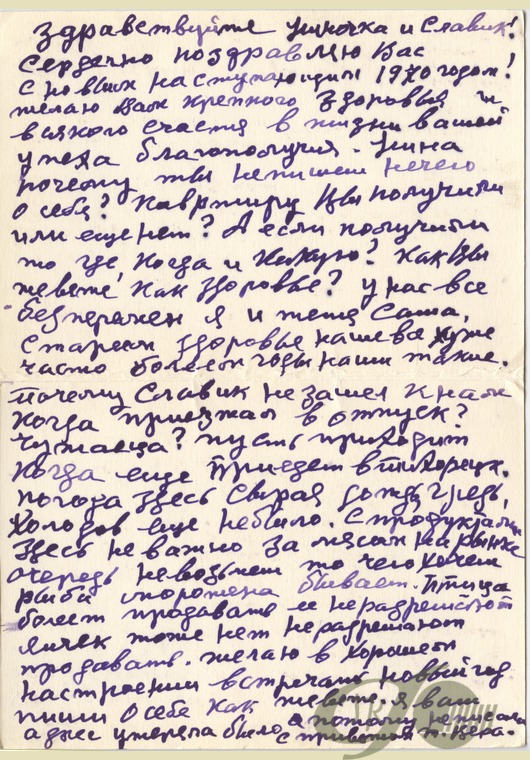 Здравствуйте Ниночка и Славик!
Сердечно поздравляю Вас
с новым наступающим 1970 годом!
желаю Вам крепкого здоровья и
всякого счастя в жизни вашей
успеха благополучия. Нина
почему ты непишеш нечего
о себе? Квартиру Вы получили
или еще нет? А если получили
то где, когда и какую? Как Вы
жевете, как здоровье? у нас все
безперемен я и тетя Саша,
стареем здоровье наше все хуже
часто болеем годы наши такие.
почему Славик не зашел к нам
когда приезжал в отпуск?
Чуждаеца? пусть приходит
когда еще приедет в тихорецк.
погода здесь сырая дождь грязь,
холодов еще небыло. С продуктами
здесь не важно за мясом на рынке
очередь невозьмеш то чего хочеш
рыба морожена бывает. Птица
болеет продавать ее неразрешают
яичек тоже нет неразрешают
продавать. желаю в хорошем
настроении встречать новый год
пиши о себе как жевете, я вам
адрес утеряла было, а потому
с приветом т. Вера.